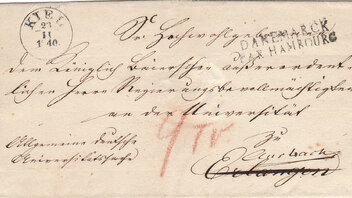 KIEL
23
11
1840.
DANEMARCK
PAR HAMBOURG
Sr. Hochwohlge
dem Königlich Baierschen Außerordent-
lichen Herrn Regierungsbevollmächtigten
an der Universität
9
zu
Allgemeine deutsche
Universitätssache
Erlangen